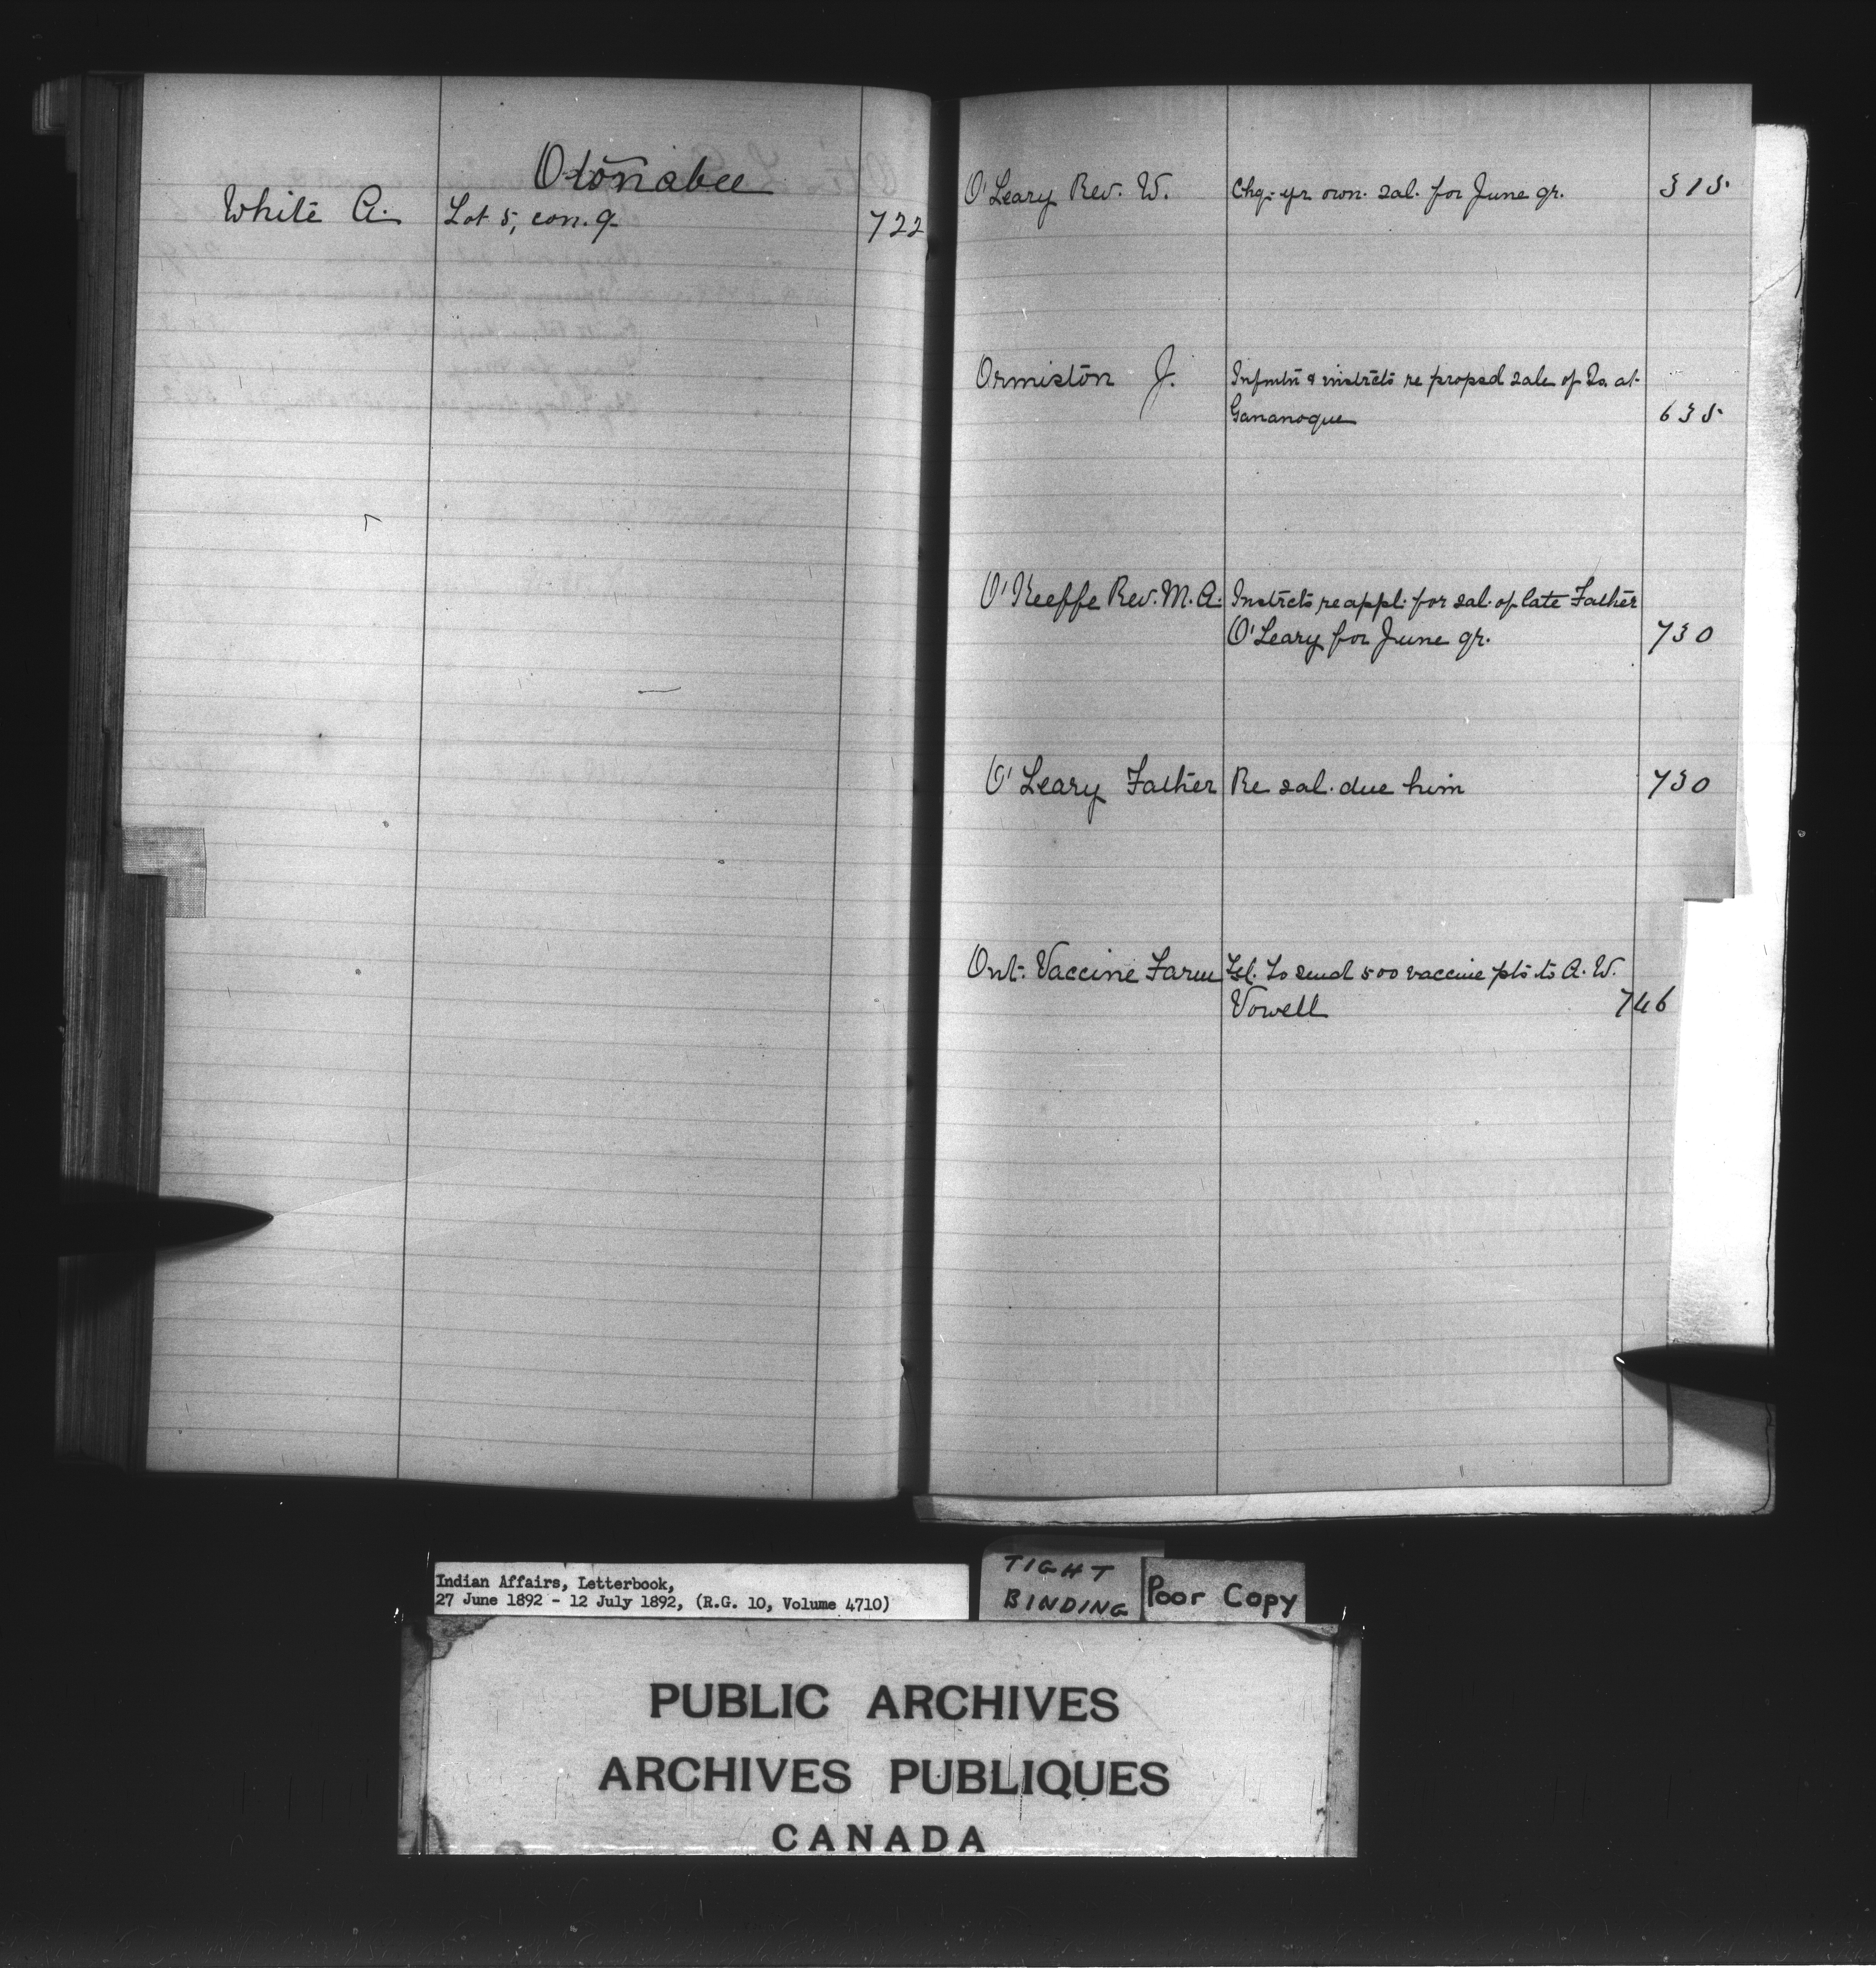 Otonabee
White A. Lot 5, con. 9 722
O'Leary Rev. W. Chq. yr own. sal. for June qr. 315
Ormiston J. Infmtn & instrcts re propsd sale of Is. at
Gananoque 635
O'Keeffe Rev. M. A. Instrcts re appl. for sal. of late Father
O'Leary for June qr. 730
O'Leary Father Re sal. due him 730
Ont. Vaccine Farm Tel. To send 500 vaccine pts to A. W.
Vowell 746
Indian Affairs, Letterbook,
27 June 1892 - 12 July 1892, (R.G. 10, Volume 4710)
TIGHT
BINDING
Poor Copy
PUBLIC ARCHIVES
ARCHIVES PUBLIQUES
CANADA